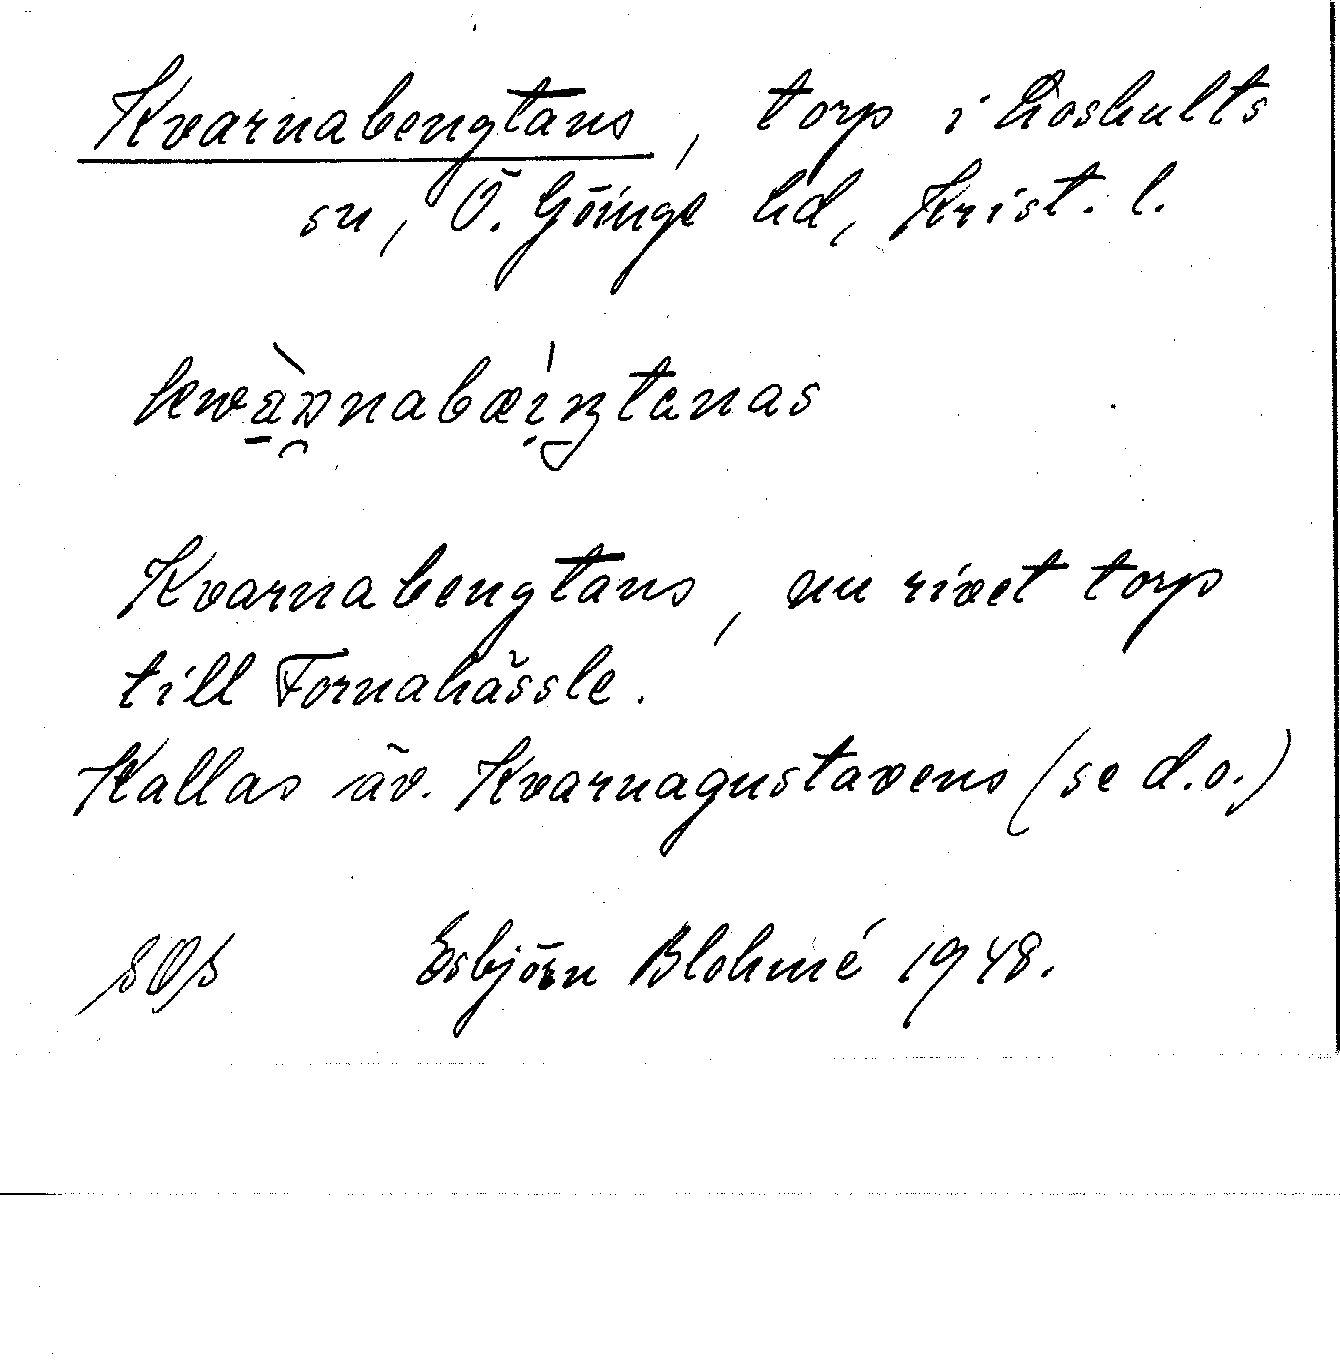 Kvarnabengtans, torp i Loshults
sn, Ö. Göinge hd, Krist. l.
Kvarnabengtans, nu rivet torp
till Fornahässle.
Kallas äv. Kvarnagustavens (se d.o.)
Esbjörn Blohmé 1948.